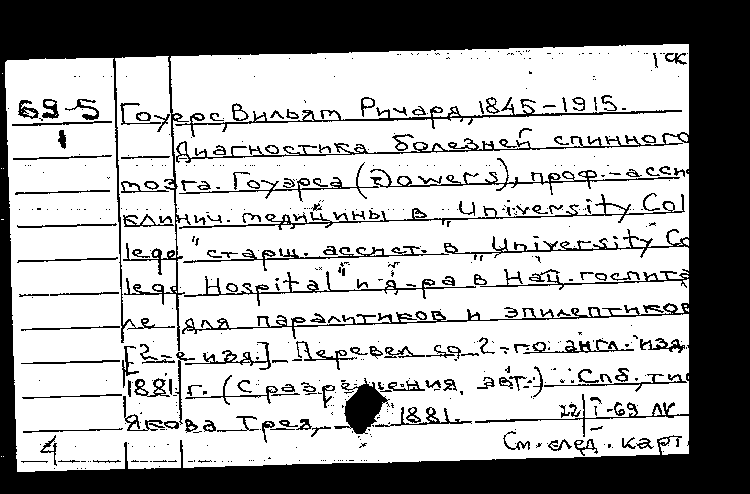 ГСК
69-5 Гоуерс, Вильям Ричард, 1845-1915.
1 Диагностика болезней спинного
мозга. Гоуэрса (Gowers), проф.-асси
клинич. медицины в „University Col
lege" старш. ассист. в „University Co
lege Hospital" и д-ра в Нац. госпита
ле для паралитиков и эпилептиков
[2-е изд.] Перевел со 2-го англ. изд.
1881 г. (С разрешения авт.) Спб, тип
Якова Трея, 1881. 22/I-69 ЛК
4 См. след. карт.